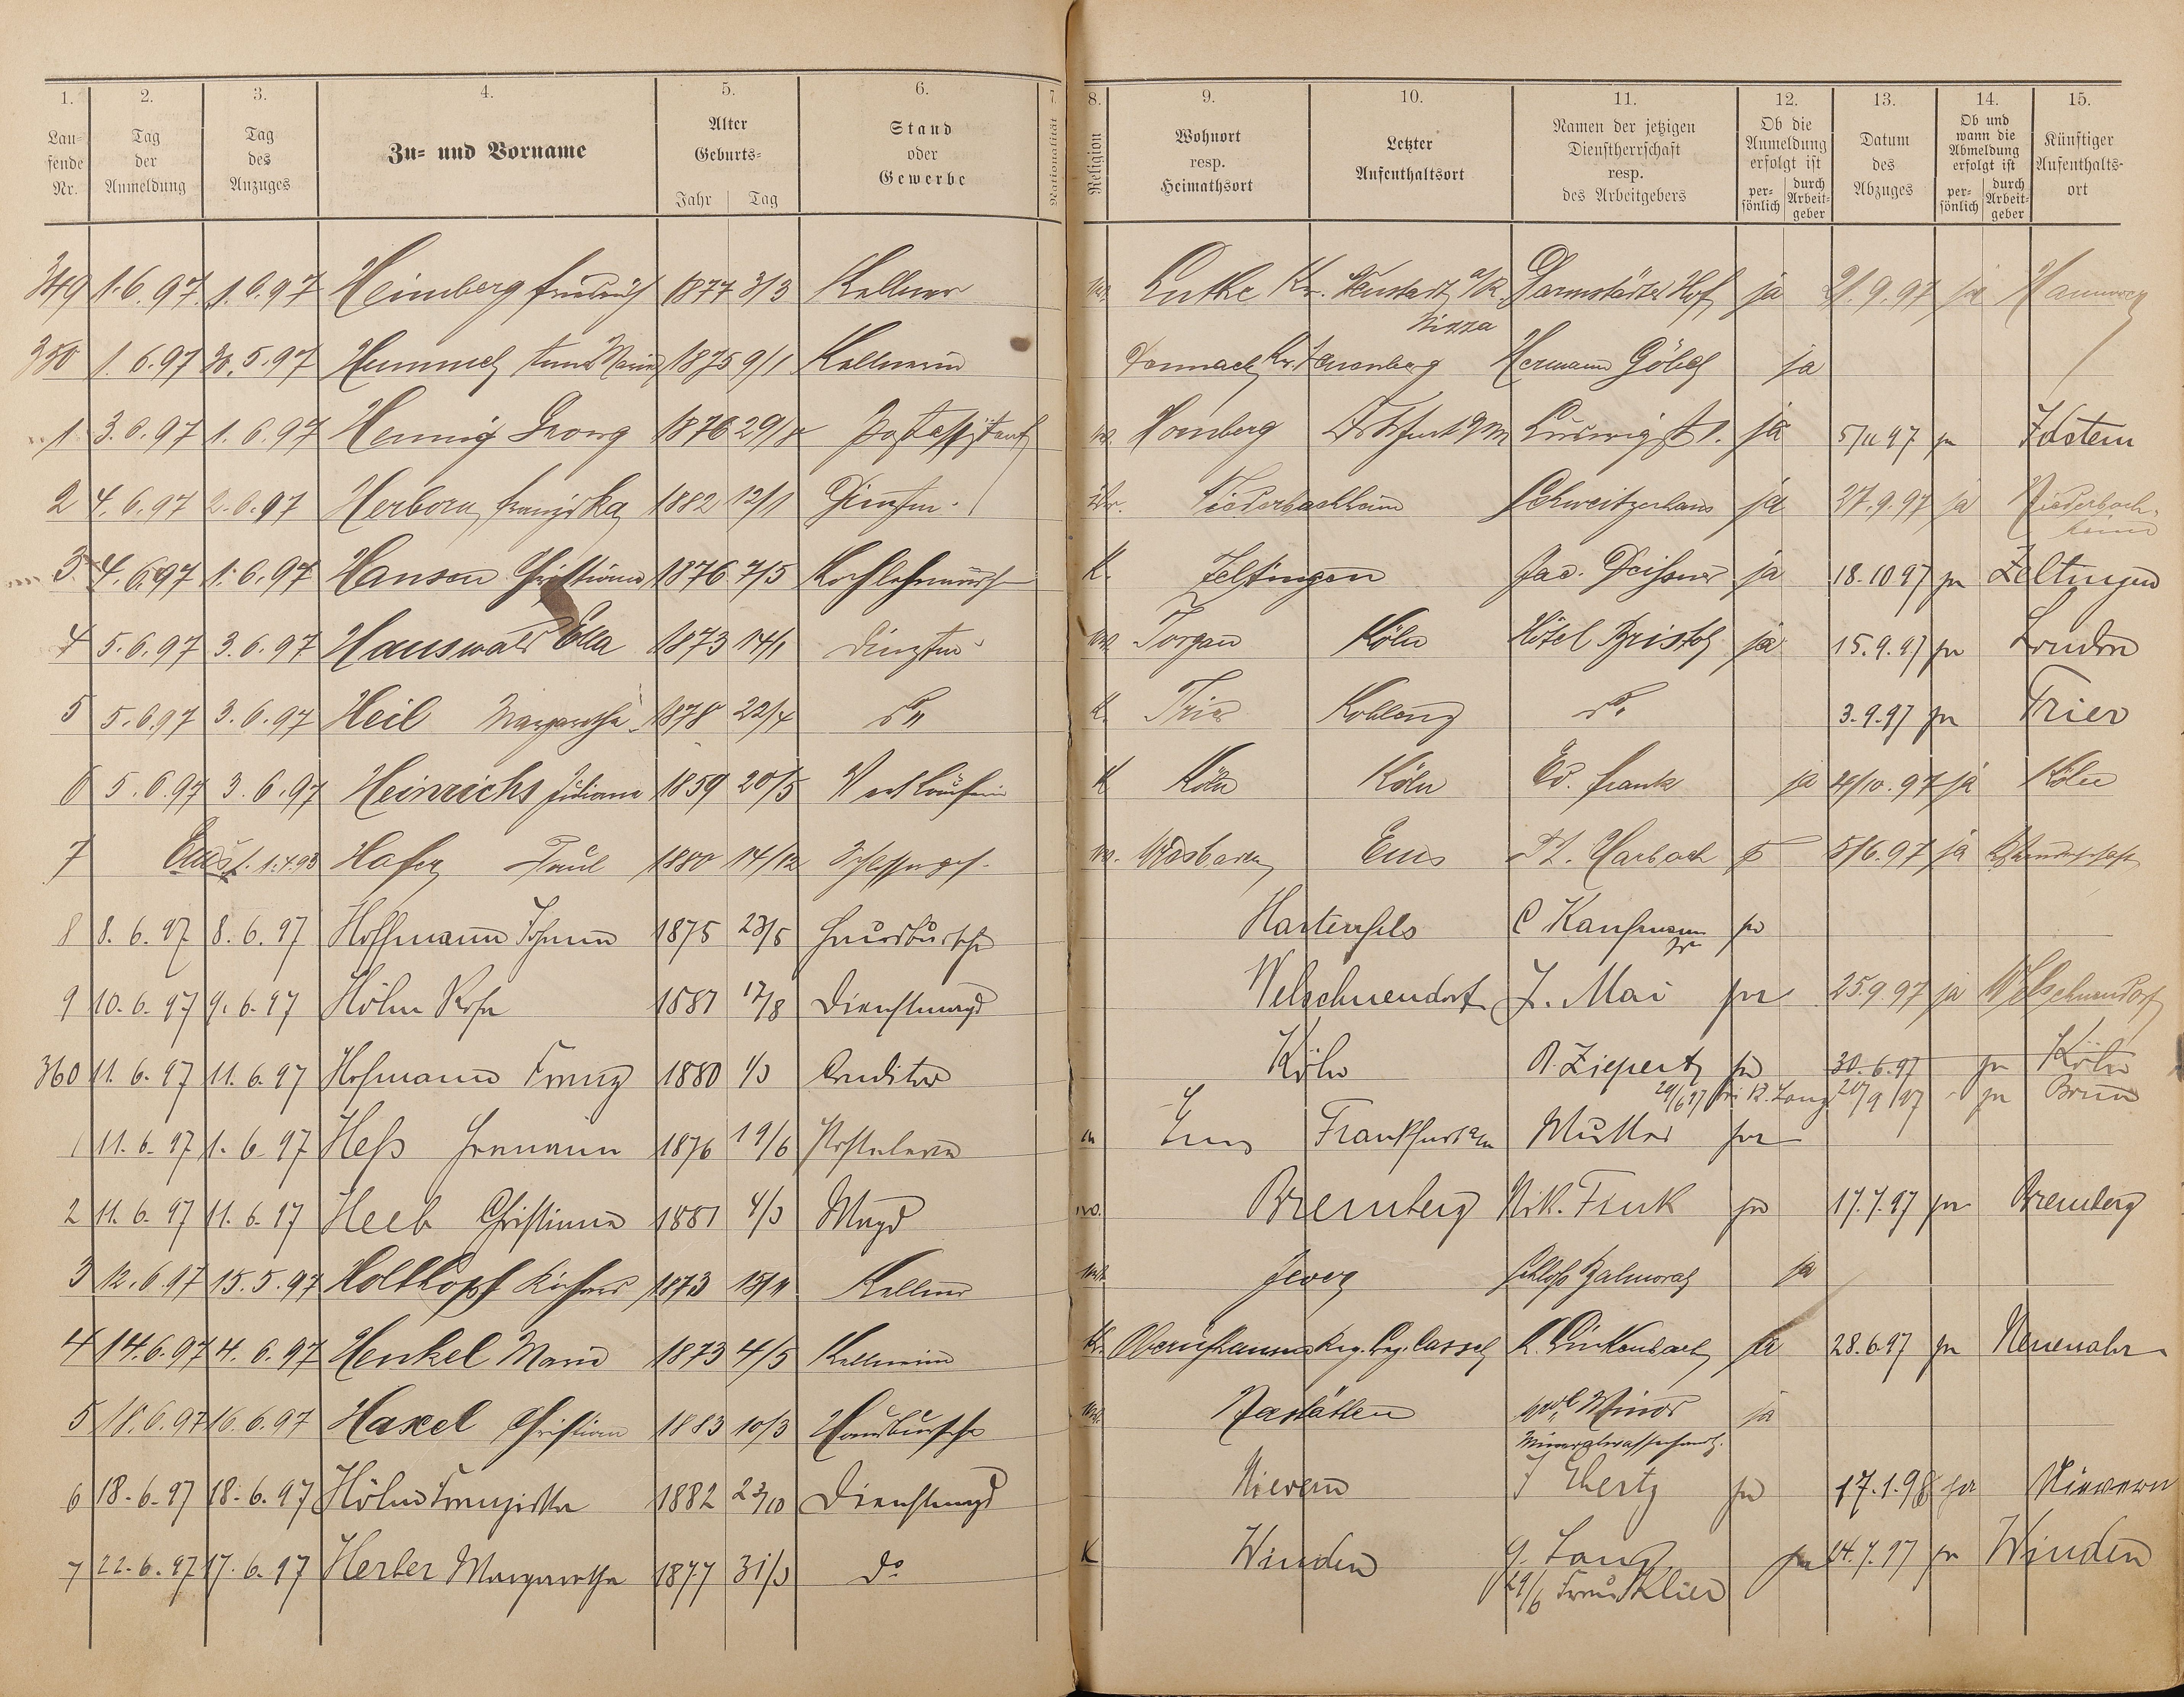 1. 2. 3. 4. 5. 6. 7. 8. 9. 10. 11. 12. 13. 14. 15.
Laufende Nr. Tag der Anmeldung Tag des Anzuges Zu- und Vorname Alter Geburts- Jahr Tag Stand oder Gewerbe Nationalität Religion Wohnort resp. Heimathsort Letzter Aufenthaltsort Namen der jetzigen Dienstherrschaft resp. des Arbeitgebers Ob die Anmeldung erfolgt ist persönlich durch Arbeitgeber Datum des Abzuges Ob und wann die Abmeldung erfolgt ist persönlich durch Arbeitgeber Künftiger Aufenthaltsort
349 1.6.97. 1.6.97 Heimberg Friedrich 1877 3/3 Kellner Lutke Kr. Neustadt Darmstädter Hof ja 21.9.97 ja
Nizza
350 1.6.97 5.97 Hemmel Anna Maria 1875 9/1 Kellnerin Hermann Göbel ja
1 3.6.97 1.6.97 Hennig Georg 1876 29/ Postassistent Homberg Ludwigstr. ja 5/11 97 ja Idstein
2 4.6.97 2.6.97 Herborn Franziska 1882 12/1 Dienstm. Niederbachheim Schweitzerhaus ja 27.9.97 ja Niederbachheim
3 4.6.97 1.6.97 Hansen Christiana 1876 7/5 K. Zeltingen Jac. ja 18.10 97 ja Zeltingen
4 5.6.97 3.6.97 Hauswald Ella 1873 14/1 Dienstm. Torgau Köln Hôtel Bristol ja 15.9.97 ja London
5 5.6.97 3.6.97 Heil Margaretha 1878 22/4 do K. Trier Koblenz do 3.9.97 ja Trier
6 5.6.97 3.6.97 Heinrichs Juliana 1859 20/5 Verkäuferin K Köln Köln Ed. Frank ja 4/10.97 ja Köln
7 Ems s. 1.4.93 Hafer Paul 1880 14/12 Schlosserges. Wiesbaden Ems Harbach 5/6.97 ja
8 8.6.97 8.6.97 Hoffmann Johann 1875 23/5 Hausbursche Hartenfels C Kaufmann ja
9 10.6.97 9.6.97 Höhn Rosa 1881 17/8 Dienstmagd Welschneudorf J. Mai ja 25.9 97 ja Welschneudorf
360 11.6.97 11.6.97 Hofmann Franz 1880 1/3 Conditor Köln A. Ziepertz ja 30.6.97 ja Köln
29/6 97 bei R. Lang 20/9 97 ja
1 11.6.97 1.6.97 Heß Hermann 1876 19/6 Ems Frankfurt a/m Mutter ja
2 11.6.97 11.6.97 Heeb Christiana 1881 4/3 Magd Bremberg Nik. Fink ja 17.7.97 ja Bremberg
3 12.6.97 15.5.97 Holtkopf Richard 1873 15/11 Kellner Jever Schloß Balmoral ja
4 14.6.97 4.6.97 Henkel Maria 1873 4/5 Kellnerin K. Reg. Bez. Cassel ja 28.6.97 ja Neuenahr
5 18.6.97 16.6.97 Haxel Christian 1883 10/3 Hausbursche Nastätten Minor ja
Mineralwasserhandl.
6 18.6.97 18.6.97 Höhn Franziska 1882 23/10 Dienstmagd Nievern J Ebertz ja 17.1.98 ja Nievern
7 22.6.97 17.6.97 Herber Margaretha 1877 31/3 do K Winden G. Lang ja 14.7.97 ja Winden
29/6 Frau Klier